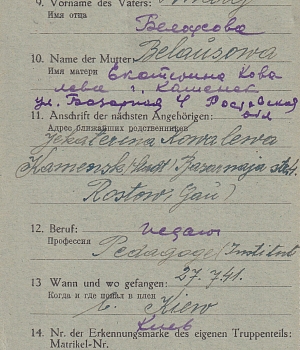 9. Vorname des Vaters:
Имя отца
Белоусова
10. Name der Mutter: Belausowa
Имя матери Екатерина Кова
лева г. Каменск
ул. Базарная 4 Ростовская
обл
11. Anschrift der nächsten Angehörigen:
Адрес ближайших родственников
Jekaterina Kowalewa
Kamensk (Stadt) Basarnaja str. 4.
Rostow (Gau)
12. Beruf: педаго
Профессия Pedagoge (Institut
13 Wann und wo gefangen: 27.7.41.
Когда и где попал в плен
b. Kiew
Киев
14. Nr. der Erkennungsmarke des eigenen Truppenteils:
Matrikel-Nr.